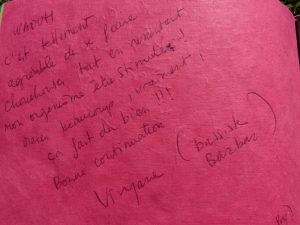 WAOUH
C'est tellement
agréable de se faire
chouchouter tout en ressentant
mon organisme être stimulé !
merci beaucoup, vraiment !
ça fait du bien !!!
Bonne continuation
(bassiste
Barbar)